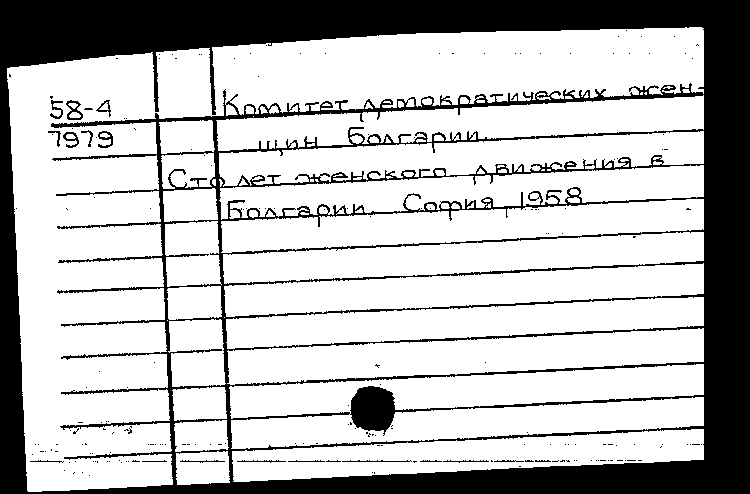 58-4 Комитет демократических жен-
7979 щин Болгарии.
Сто лет женского движения в
Болгарии. София, 1958